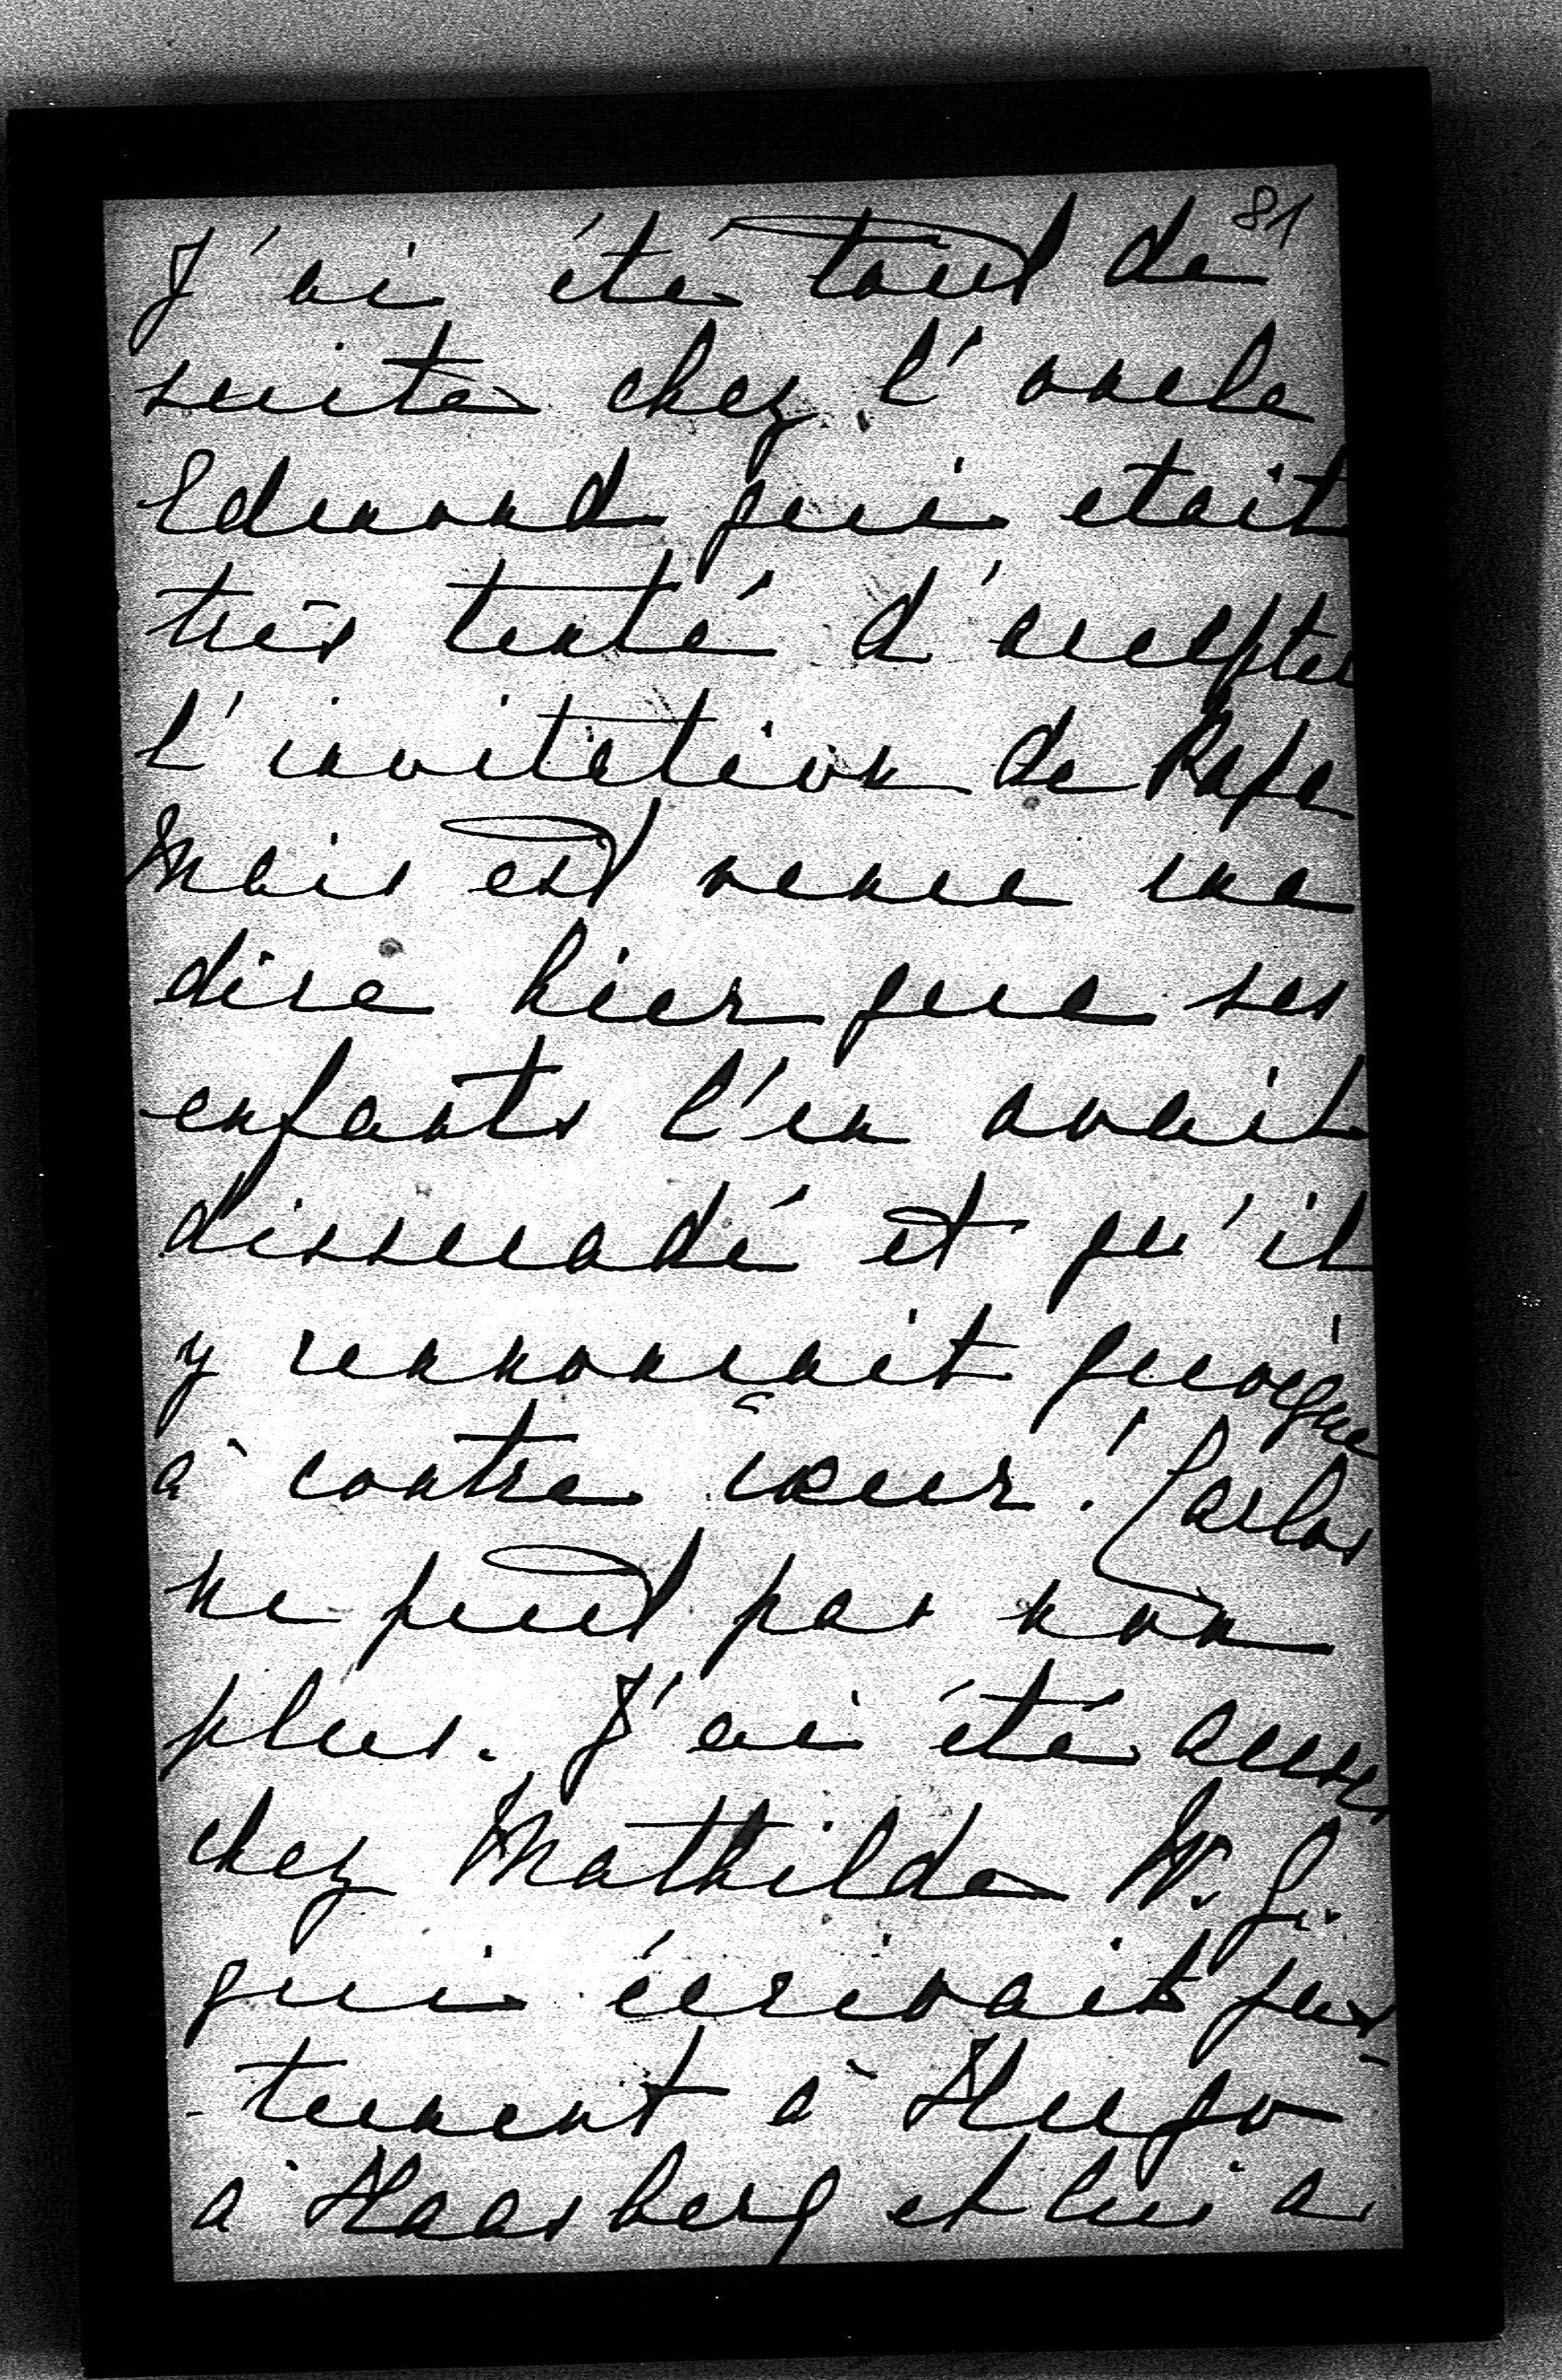 81
J'ai été tout de
suite chez l'oncle
Edmond qui etait
très tenté d'accepter
l'invitation de Papa
Mais est venu me
dire hier que ses
enfants l'en avait
dissuadé et qu'il
y rennonçait quoique
à contre cœur! Carlos
ne peut pas non
plus. J'ai été aussi
chez Mathilde W. G.
qui écrivait jus
-tement à Hugo
à Haasberg et lui a